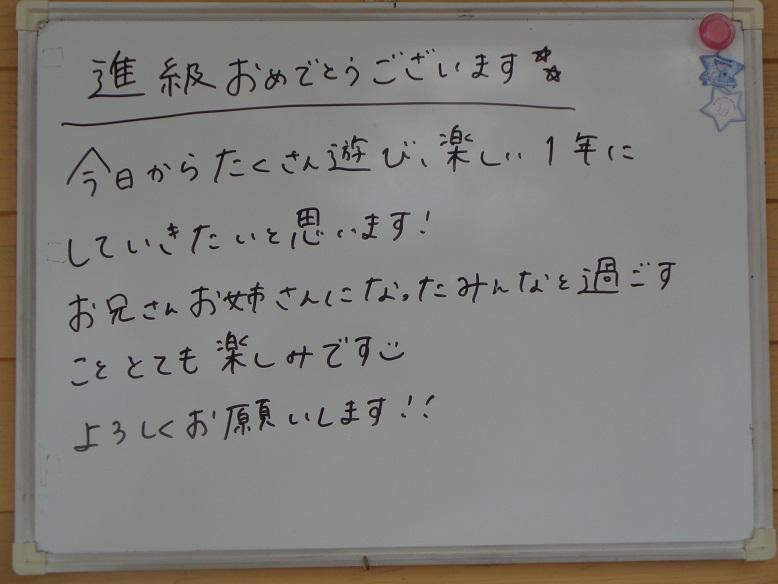 進級おめでとうございます☆☆
今日からたくさん遊び、楽しい1年に
していきたいと思います!
お兄さんお姉さんになったみんなと過ごす
こととても楽しみです
よろしくお願いします!!